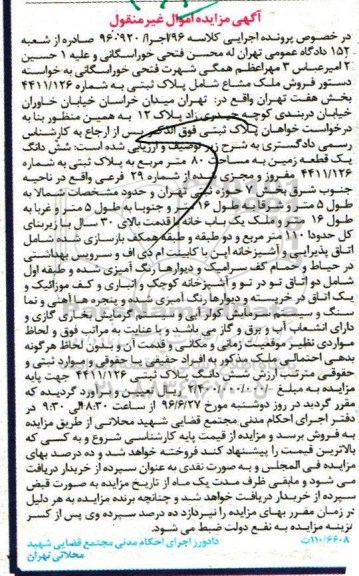 آگهی مزایده اموال غیر منقول
در خصوص پرونده اجرایی کلاسه ۹۶/اجرا/۹۶۰۹۲۰ صادره از شعبه
۱۵۲ دادگاه عمومی تهران له محسن فتحی خوراسگانی و علیه ۱ حسین
۲ امیرعباس ۳ مهراعظم همگی شهرت فتحی خوراسگانی به خواسته
دستور فروش ملک مشاع شامل پلاک ثبتی به شماره ۴۴۱۱/۱۲۶
بخش هفت تهران واقع در: تهران میدان خراسان خیابان خاوران
خیابان دربندی کوچه حیدری زاد پلاک ۱۲ به همین منظور بنا به
درخواست خواهان پلاک ثبتی فوق الذکر پس از ارجاع به کارشناس
رسمی دادگستری به شرح زیر توصیف و ارزیابی شده است: شش دانگ
یک قطعه زمین به مساحت ۸۰ متر مربع به پلاک ثبتی به شماره
۴۴۱۱/۱۲۶ مفروز و مجزی شده از شماره ۲۹ فرعی واقع در ناحیه
جنوب شرق بخش ۷ حوزه ثبتی تهران و حدود مشخصات شمالا به
طول ۵ متر و شرقا به طول ۱۶ متر و جنوبا به طول ۵ متر و غربا به
طول ۱۶ متر و ملک یک باب خانه با قدمت بالای ۳۰ سال با زیربنای
کل حدودا ۱۱۰ متر مربع و دو طبقه و طبقه همکف بازسازی شده شامل
اتاق پذیرایی و آشپزخانه اپن با کابینت ام دی اف و سرویس بهداشتی
در حیاط و حمام کف سرامیک و دیوارها رنگ آمیزی شده و طبقه اول
شامل دو اتاق تو در تو و آشپزخانه کوچک و انباری و کف موزائیک و
یک اتاق در خرپسته و دیوارها رنگ آمیزی شده و پنجره ها آهنی و نما
سنگ و سیستم سرمایش کولر آبی و سیستم گرمایش بخاری گازی و
دارای انشعاب آب و برق و گاز می باشد و با عنایت به مراتب فوق و لحاظ
مواردی نظیر موقعیت زمانی و مکانی و قدمت آن و بدون لحاظ هرگونه
بدهی احتمالی ملک مذکور به افراد حقیقی یا حقوقی و موارد ثبتی و
حقوقی مترتب ارزش شش دانگ پلاک ثبتی ۴۴۱۱/۱۲۶ جهت پایه
مزایده به مبلغ ریال تعیین و برآورد گردیده که
مقرر گردید در روز دوشنبه مورخ ۹۶/۶/۲۷ از ساعت ۸:۳۰ الی ۹:۳۰ در
دفتر اجرای احکام مدنی مجتمع قضایی شهید محلاتی از طریق مزایده
به فروش برسد و مزایده از قیمت پایه کارشناسی شروع و به کسی که
بالاترین قیمت را پیشنهاد کند فروخته خواهد شد و ده درصد بهای
مزایده فی المجلس و به صورت نقدی به عنوان سپرده از خریدار دریافت
می شود و مابقی ظرف مدت یک ماه از تاریخ مزایده به صورت قبض
سپرده از خریدار دریافت خواهد شد و چنانچه برنده مزایده به هر دلیل
در زمان مقرر بهای مزایده را نپردازد ده درصد سپرده وی پس از کسر
هزینه مزایده به نفع دولت ضبط می شود.
۱۱۰/۶۶۰۸ت
دادورز اجرای احکام مدنی مجتمع قضایی شهید
محلاتی تهران